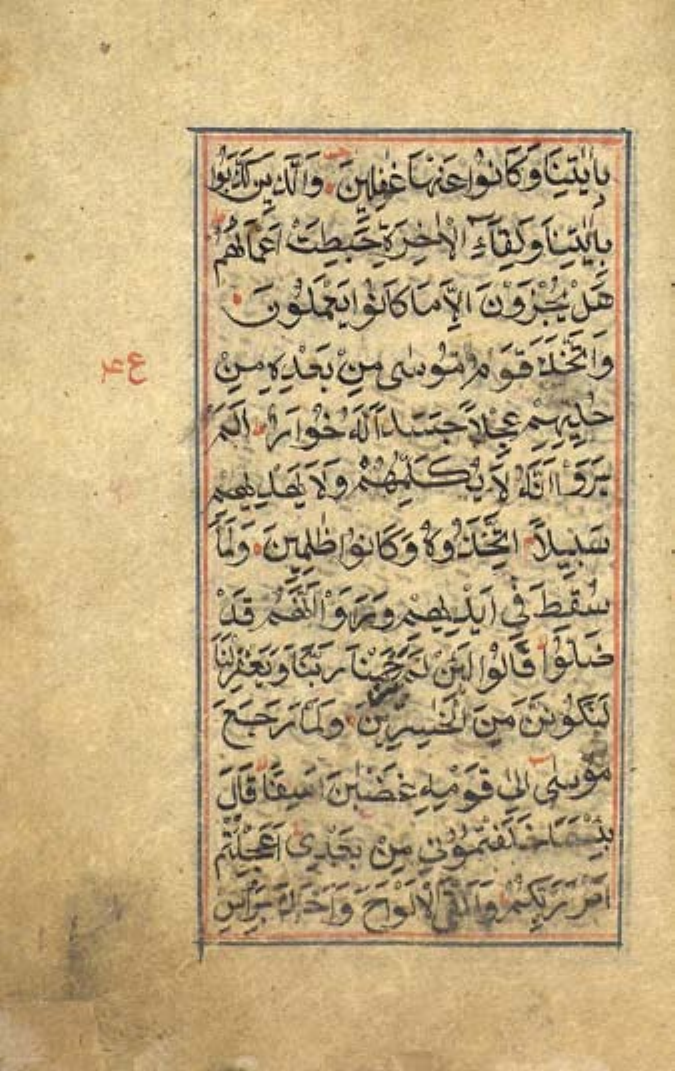 بِاٰيٰتِنَا وَكَانُوْا عَنْهَا غٰفِلِيْنَ وَالَّذِيْنَ كَذَّبُوْا
بِاٰيٰتِنَا وَلِقَآءِ الْاٰخِرَةِ حَبِطَتْ اَعْمَالُهُمْ
هَلْ يُجْزَوْنَ اِلَّا مَا كَانُوْا يَعْمَلُوْنَ
وَاتَّخَذَ قَوْمُ مُوْسٰى مِنْ بَعْدِهٖ مِنْ
حُلِيِّهِمْ عِجْلًا جَسَدًا لَّهٗ خُوَارٌ اَلَمْ
يَرَوْا اَنَّهٗ لَا يُكَلِّمُهُمْ وَلَا يَهْدِيْهِمْ
سَبِيْلًا اِتَّخَذُوْهُ وَكَانُوْا ظٰلِمِيْنَ وَلَمَّا
سُقِطَ فِيْ اَيْدِيْهِمْ وَرَاَوْا اَنَّهُمْ قَدْ
ضَلُّوْا قَالُوْا لَئِنْ لَمْ يَرْحَمْنَا رَبُّنَا وَيَغْفِرْ لَنَا
لَنَكُوْنَنَّ مِنَ الْخٰسِرِيْنَ وَلَمَّا رَجَعَ
مُوْسٰى اِلٰى قَوْمِهٖ غَضْبٰنَ اَسِفًا قَالَ
بِئْسَمَا خَلَفْتُمُوْنِيْ مِنْ بَعْدِيْ اَعَجِلْتُمْ
اَمْرَ رَبِّكُمْ وَاَلْقَى الْاَلْوَاحَ وَاَخَذَ بِرَاْسِ
ع